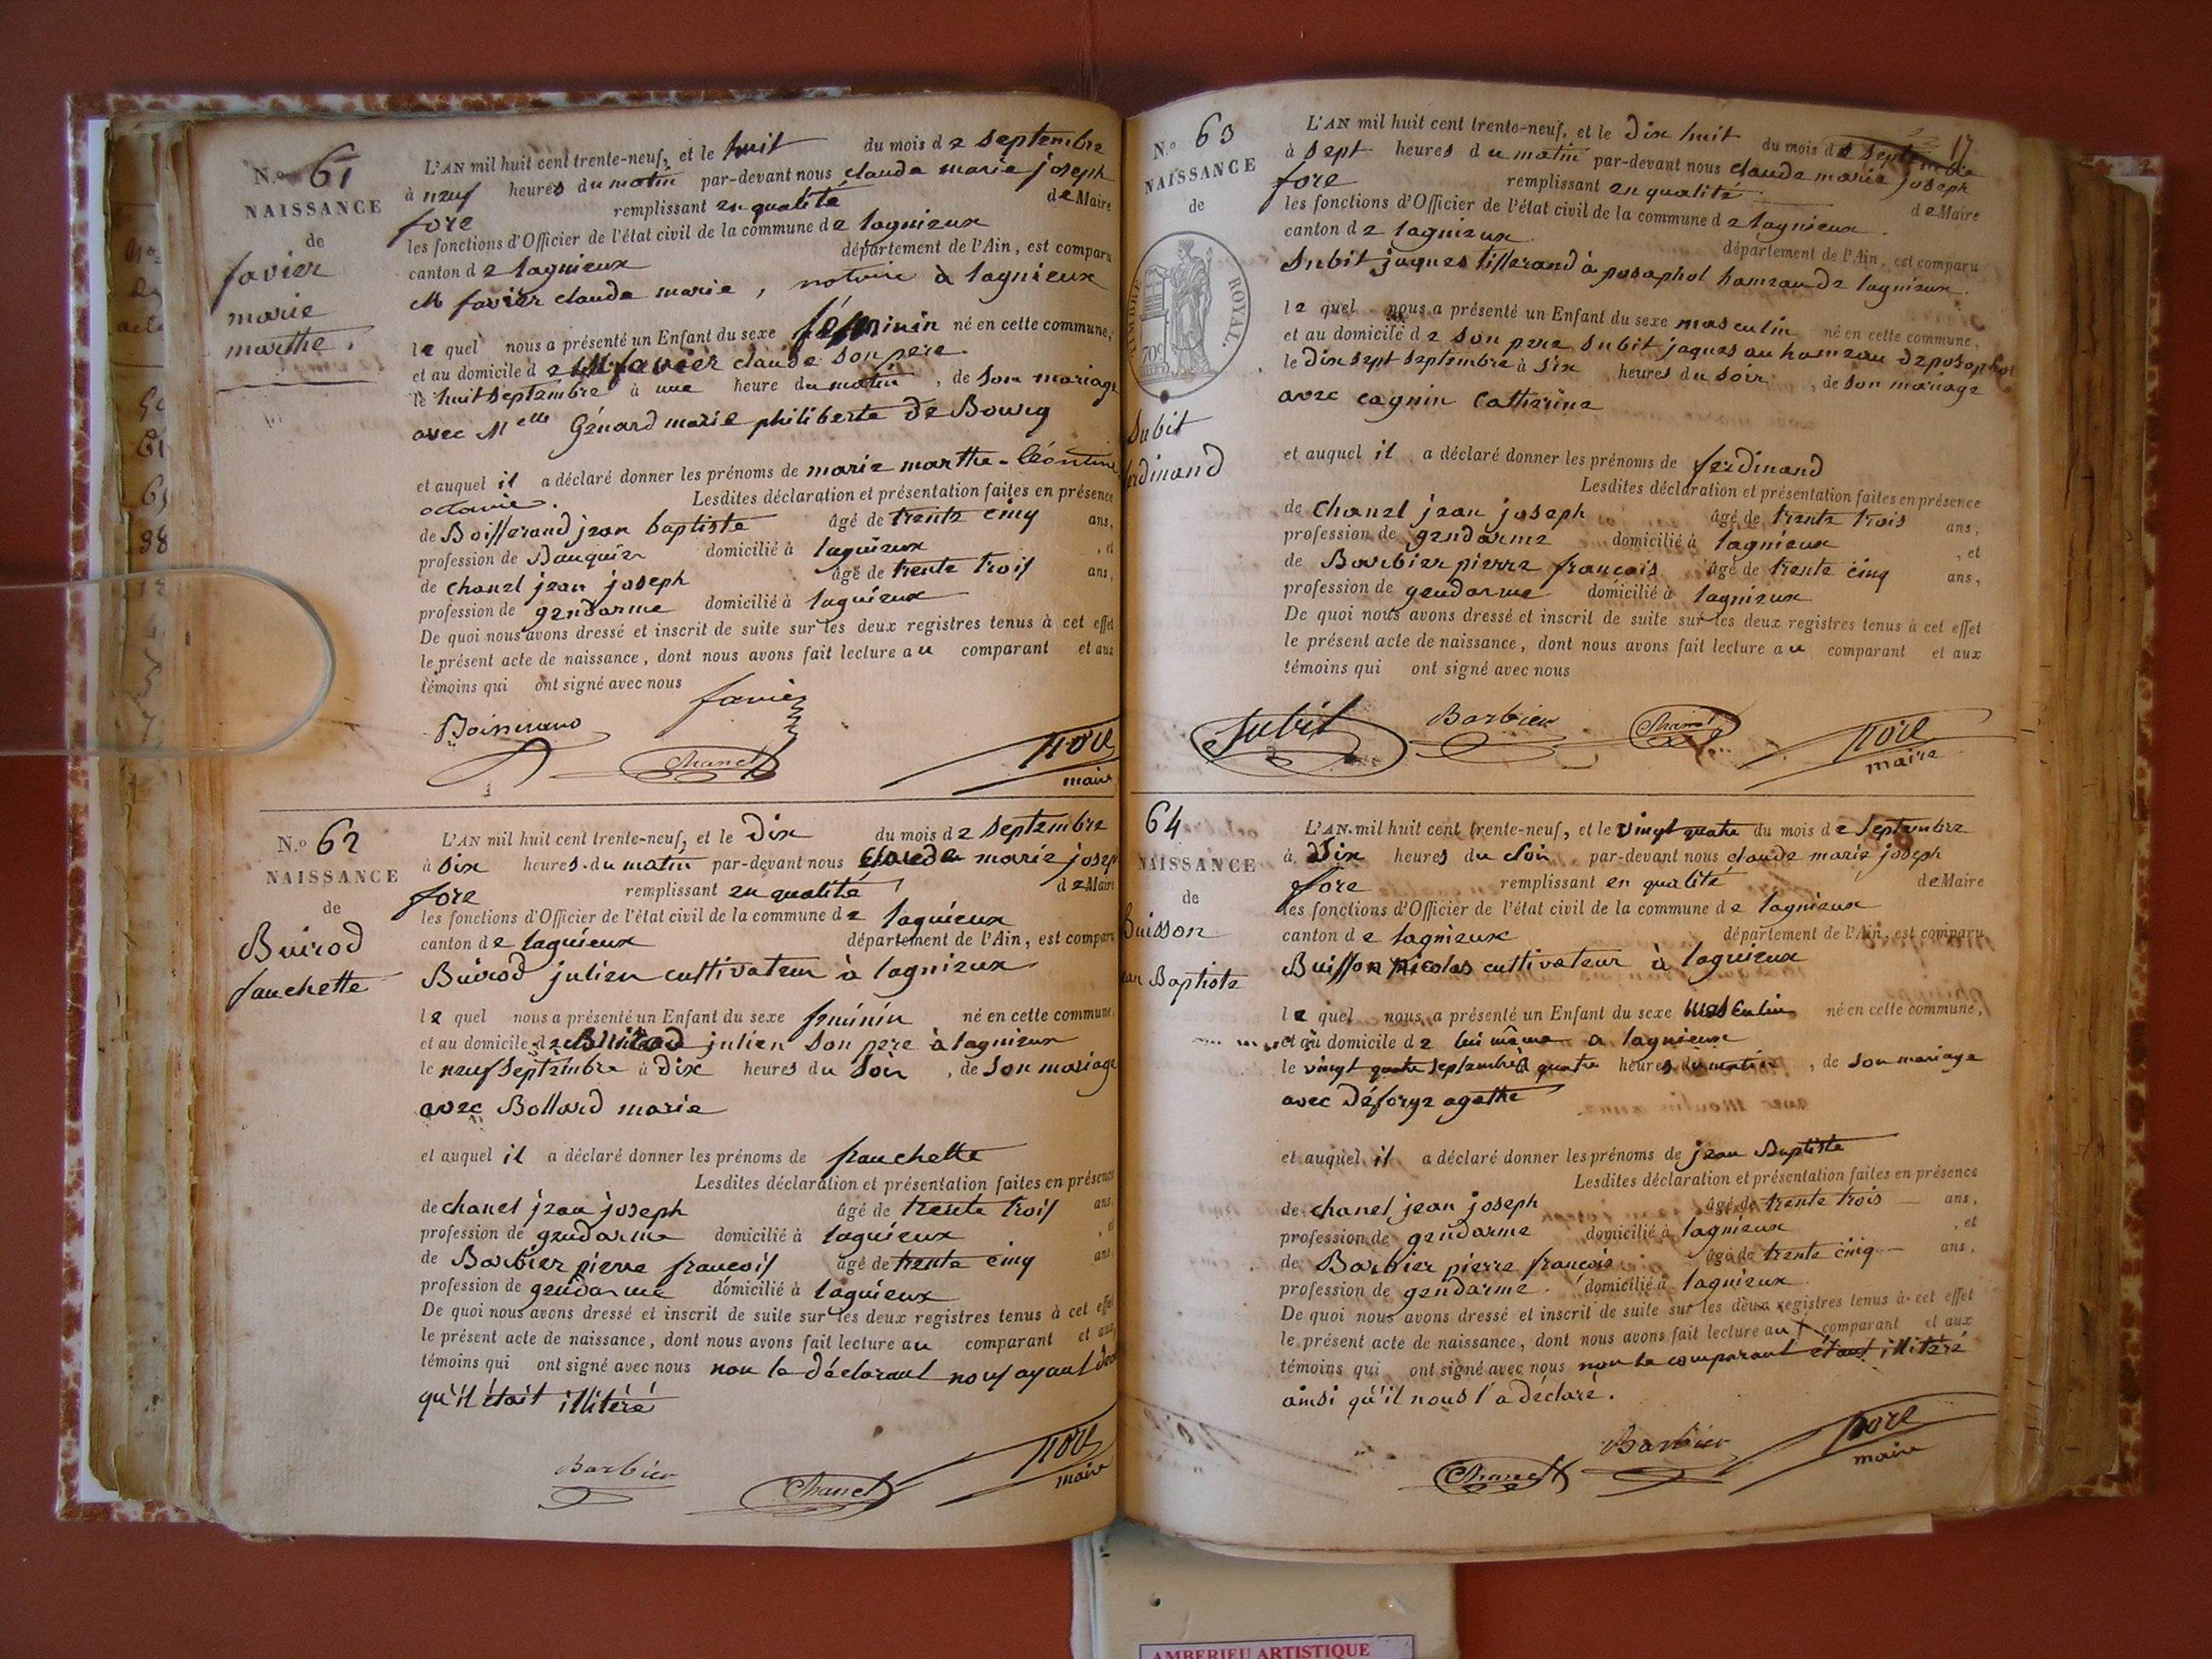 N.o 61
NAISSANCE
de
favier
marie
marthe.
L'AN mil huit cent trente-neuf, et le huit du mois de Septembre
à neuf heures du matin par-devant nous claude marie joseph
fore remplissant en qualité de Maire
les fonctions d'Officier de l'état civil de la commune de lagnieux
canton de lagnieux département de l'Ain, est comparu
M favier claude marie, notaire à lagnieux
le quel nous a présenté un Enfant du sexe féminin né en cette commune,
et au domicile de M favier claude son pere
le huit septembre à une heure du matin, de son mariage
avec Melle Génard marie philiberte de Bourg
et auquel il a déclaré donner les prénoms de marie marthe-Léontine
octavie. Lesdites déclaration et présentation faites en présence
de Boisserand jean baptiste âgé de trente cinq ans,
profession de Banquier domicilié à lagnieux, et
de chanel jean joseph âgé de trente trois ans,
profession de gendarme domicilié à lagnieux
De quoi nous avons dressé et inscrit de suite sur les deux registres tenus à cet effet
le présent acte de naissance, dont nous avons fait lecture au comparant et aux
témoins qui ont signé avec nous
favier
Boisserand
Chanel
fore
maire
N.o 62
NAISSANCE
de
Buirod
fanchette
L'AN mil huit cent trente-neuf, et le dix du mois de Septembre
à dix heures du matin par-devant nous claude marie josep
fore remplissant en qualité de Maire
les fonctions d'Officier de l'état civil de la commune de lagnieux
canton de lagnieux département de l'Ain, est comparu
Buirod julien cultivateur à lagnieux
le quel nous a présenté un Enfant du sexe féminin né en cette commune
et au domicile de Buirod julien son pere à lagnieux
le neuf Septembre à dix heures du soir, de son mariage
avec Bollard marie
et auquel il a déclaré donner les prénoms de franchette
Lesdites déclaration et présentation faites en présence
de chanel jean joseph âgé de trente trois ans
profession de gendarme domicilié à lagnieux, et
de Barbier pierre francois âgé de trente cinq ans
profession de gendarme domicilié à lagnieux
De quoi nous avons dressé et inscrit de suite sur les deux registres tenus à cet effet
le présent acte de naissance, dont nous avons fait lecture au comparant et aux
témoins qui ont signé avec nous non le déclarant nous ayant
qu'il était illitéré
Barbier
Chanel
fore
maire
17
N.o 63
NAISSANCE
de
TIMBRE ROYAL.
70c
Subit
ferdinand
L'AN mil huit cent trente-neuf, et le dix huit du mois de Septembre
à sept heures du matin par-devant nous claude marie joseph
fore remplissant en qualité de Maire
les fonctions d'Officier de l'état civil de la commune de lagnieux.
canton de lagnieux. département de l'Ain, est comparu
Subit jaques tisserand à posaphol hameau de lagnieux.
le quel nous a présenté un Enfant du sexe masculin né en cette commune,
et au domicile de son pere subit jaques au hameau de posaphol
le dix sept septembre à six heures du soir, de son mariage
avec cagnin Catherine
et auquel il a déclaré donner les prénoms de ferdinand
Lesdites déclaration et présentation faites en présence
de chanel jean joseph âgé de trente trois ans,
profession de gendarme domicilié à lagnieux, et
de Barbier pierre francois âgé de trente cinq ans,
profession de gendarme domicilié à lagnieux
De quoi nous avons dressé et inscrit de suite sur les deux registres tenus à cet effet
le présent acte de naissance, dont nous avons fait lecture au comparant et aux
témoins qui ont signé avec nous
Subit
Barbier
Chanel
fore
maire
64
NAISSANCE
de
Buisson
Baptiste
L'AN mil huit cent trente-neuf, et le vingt quatre du mois de Septembre
à dix heures du soir par-devant nous claude marie joseph
fore remplissant en qualité de Maire
les fonctions d'Officier de l'état civil de la commune de lagnieux
canton de lagnieux département de l'Ain, est comparu
Buisson nicolas cultivateur à lagnieux
le quel nous a présenté un Enfant du sexe masculin né en cette commune,
et au domicile de lui même a lagnieux
le vingt quatre septembre à quatre heures du matin, de son mariage
avec déforye agathe
et auquel il a déclaré donner les prénoms de jean Baptiste
Lesdites déclaration et présentation faites en présence
de chanel jean joseph âgé de trente trois ans,
profession de gendarme domicilié à lagnieux, et
de Barbier pierre francois âgé de trente cinq ans,
profession de gendarme. domicilié à lagnieux.
De quoi nous avons dressé et inscrit de suite sur les deux registres tenus à cet effet
le présent acte de naissance, dont nous avons fait lecture au comparant et aux
témoins qui ont signé avec nous non le comparant étant illitéré
ainsi qu'il nous l'a déclaré.
Chanel
Barbier
fore
maire
AMBERIEU ARTISTIQUE